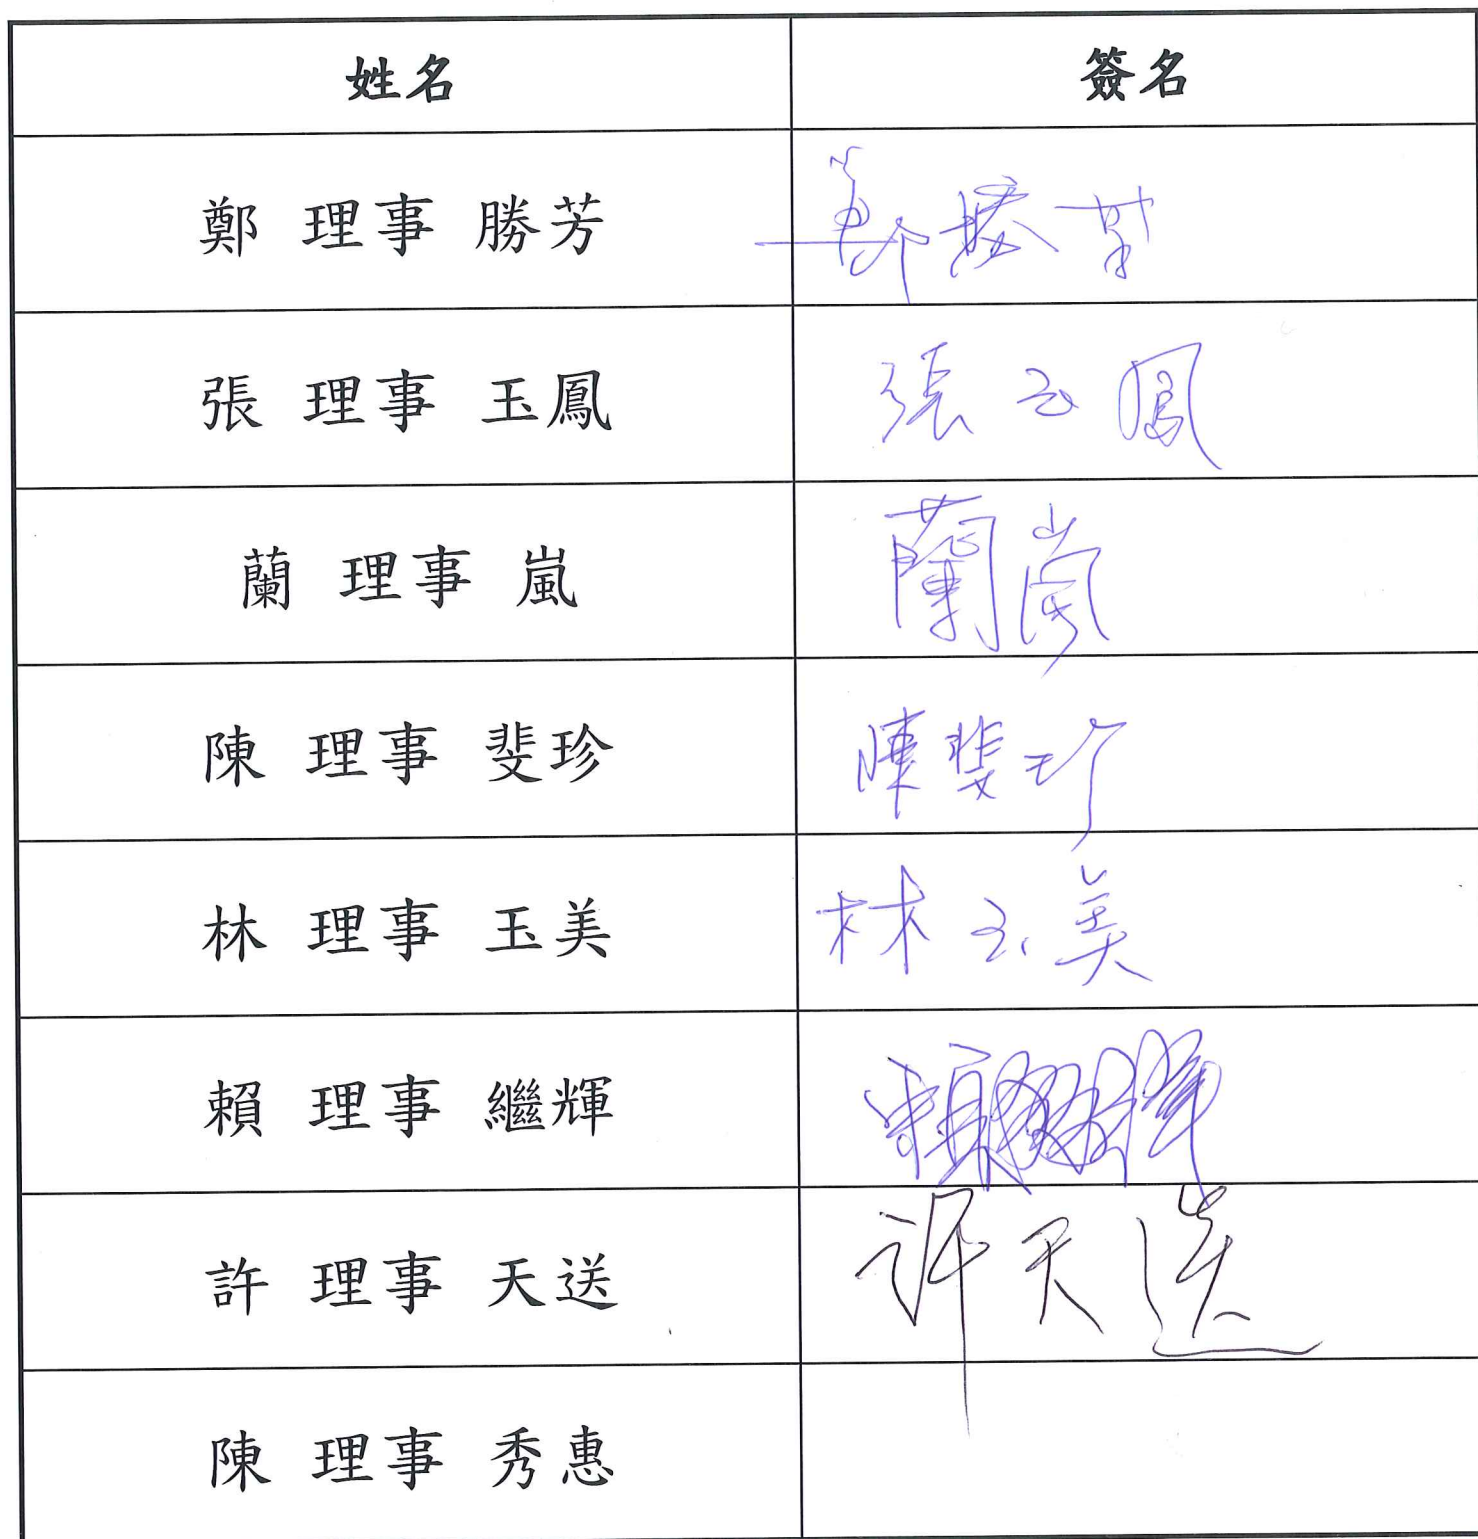 姓名 簽名
鄭 理事 勝芳 鄭勝芳
張 理事 玉鳳 張玉鳳
蘭 理事 嵐 蘭嵐
陳 理事 斐珍 陳斐珍
林 理事 玉美 林玉美
賴 理事 繼輝 賴繼輝
許 理事 天送 許天送
陳 理事 秀惠